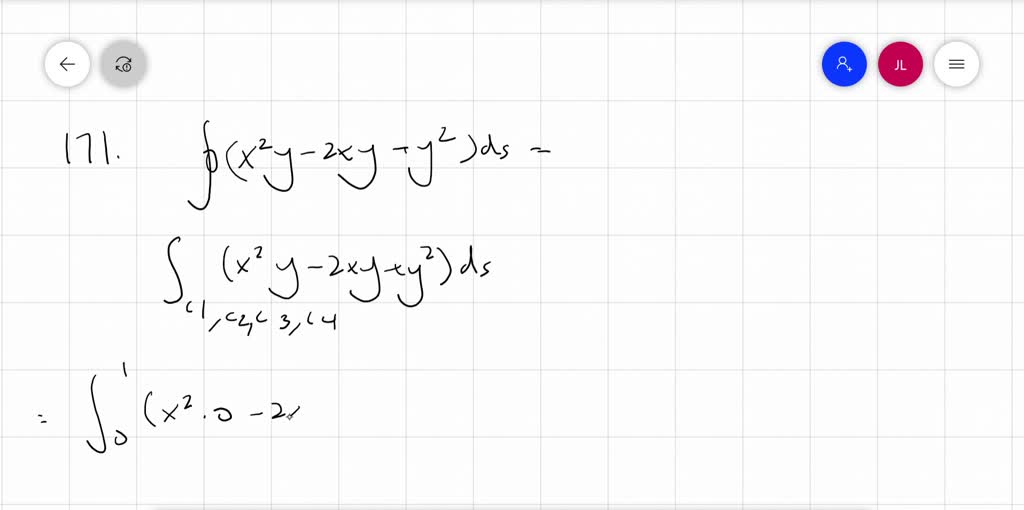 JL
171. ∮(x²y-2xy+y²)ds =
∫c1,c2,c3,c4 (x²y-2xy+y²)ds
= ∫₀¹ (x²·0-2x